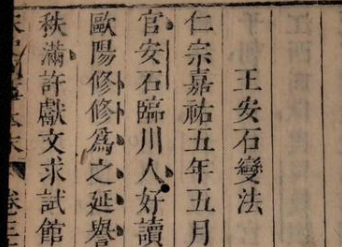 王安石變法
仁宗嘉祐五年五月
官安石臨川人好讀
歐陽修修爲之延譽
秩滿許獻文求試館
宋史
本末
卷三